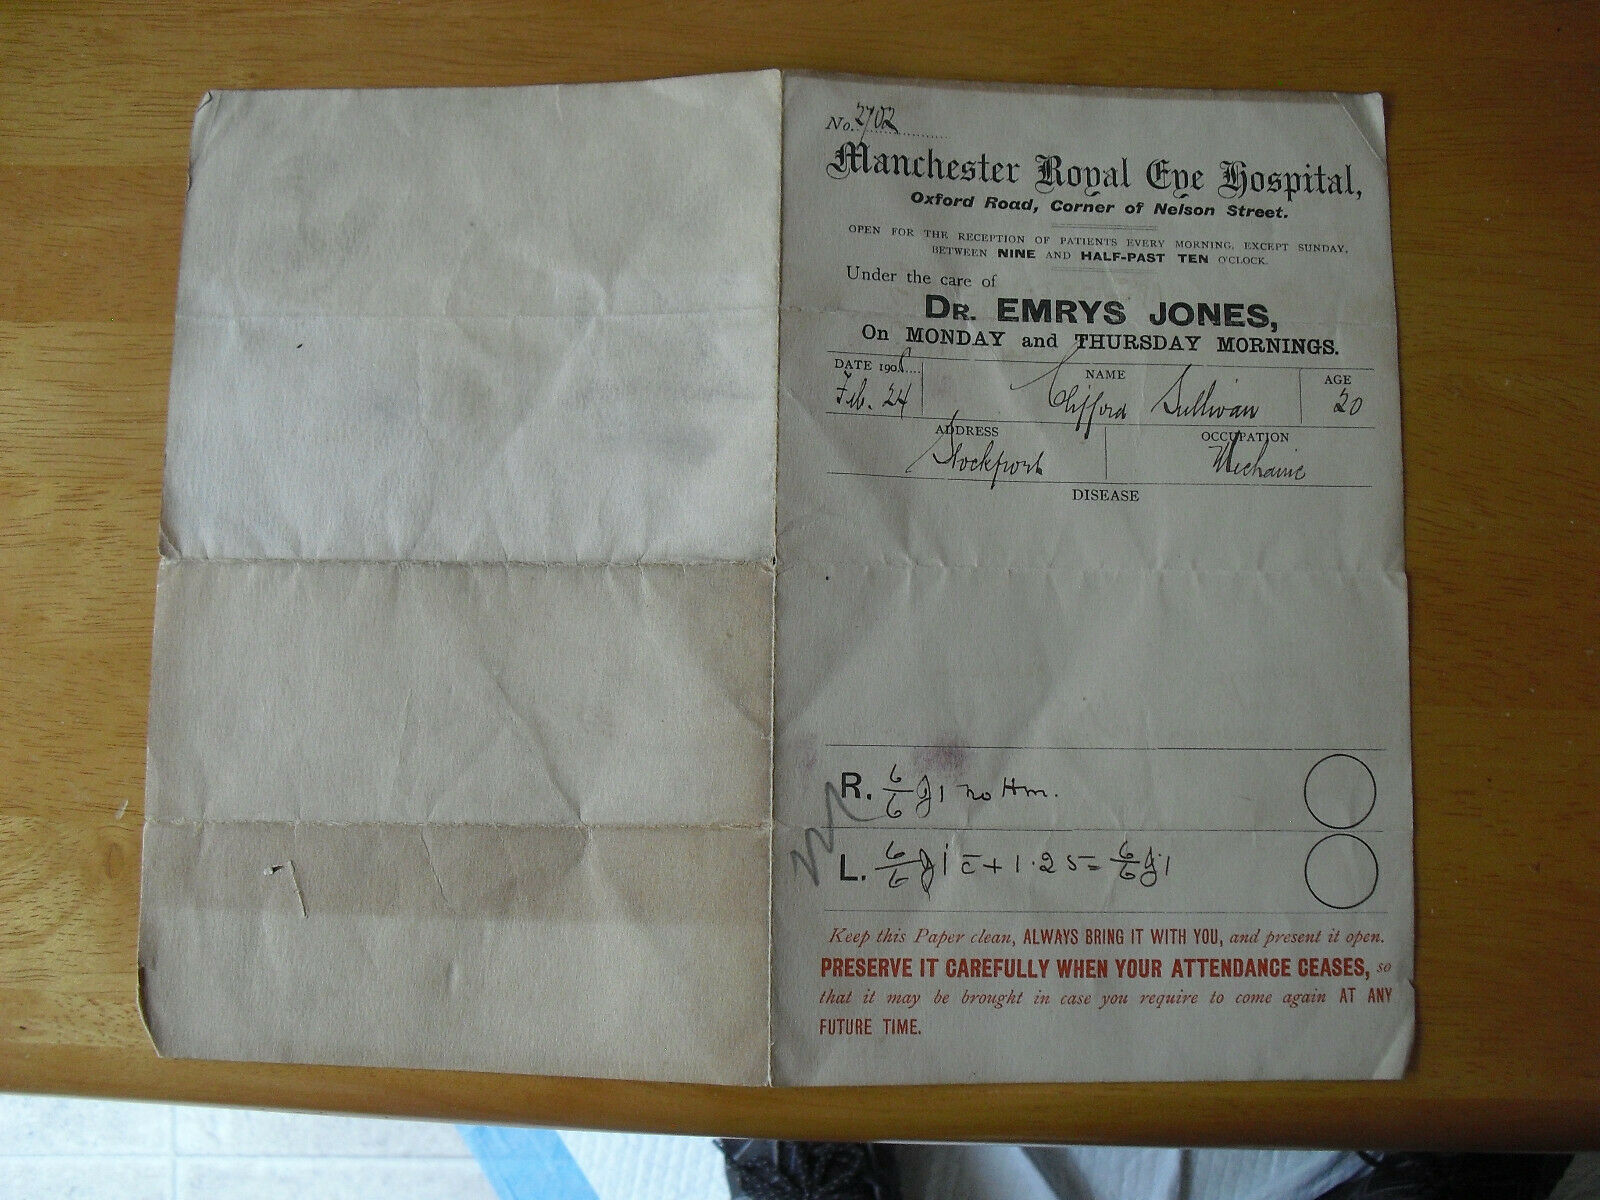 No. 2702
Manchester Royal Eye Hospital,
Oxford Road, Corner of Nelson Street.
OPEN FOR THE RECEPTION OF PATIENTS EVERY MORNING, EXCEPT SUNDAY,
BETWEEN NINE AND HALF-PAST TEN O'CLOCK.
Under the care of
DR. EMRYS JONES,
On MONDAY and THURSDAY MORNINGS.
DATE 190 NAME AGE
Feb. 24 Clifford Sullivan 20
ADDRESS OCCUPATION
Stockport Mechanic
DISEASE
R. 6/6 J1 no Hm.
L. 6/6 J1 c̄ + 1.25 = 6/6 J1
Keep this Paper clean, ALWAYS BRING IT WITH YOU, and present it open.
PRESERVE IT CAREFULLY WHEN YOUR ATTENDANCE CEASES, so
that it may be brought in case you require to come again AT ANY
FUTURE TIME.